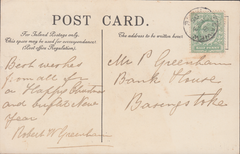 POST CARD.
For Inland Postage only
This space may be used for correspondence
(Post office Regulation).
The address to be written here.
Best wishes
from all for
a Happy Christmas
and bright New
Year
Robert W Greenham
Mr P Greenham
Bank House
Basingstoke